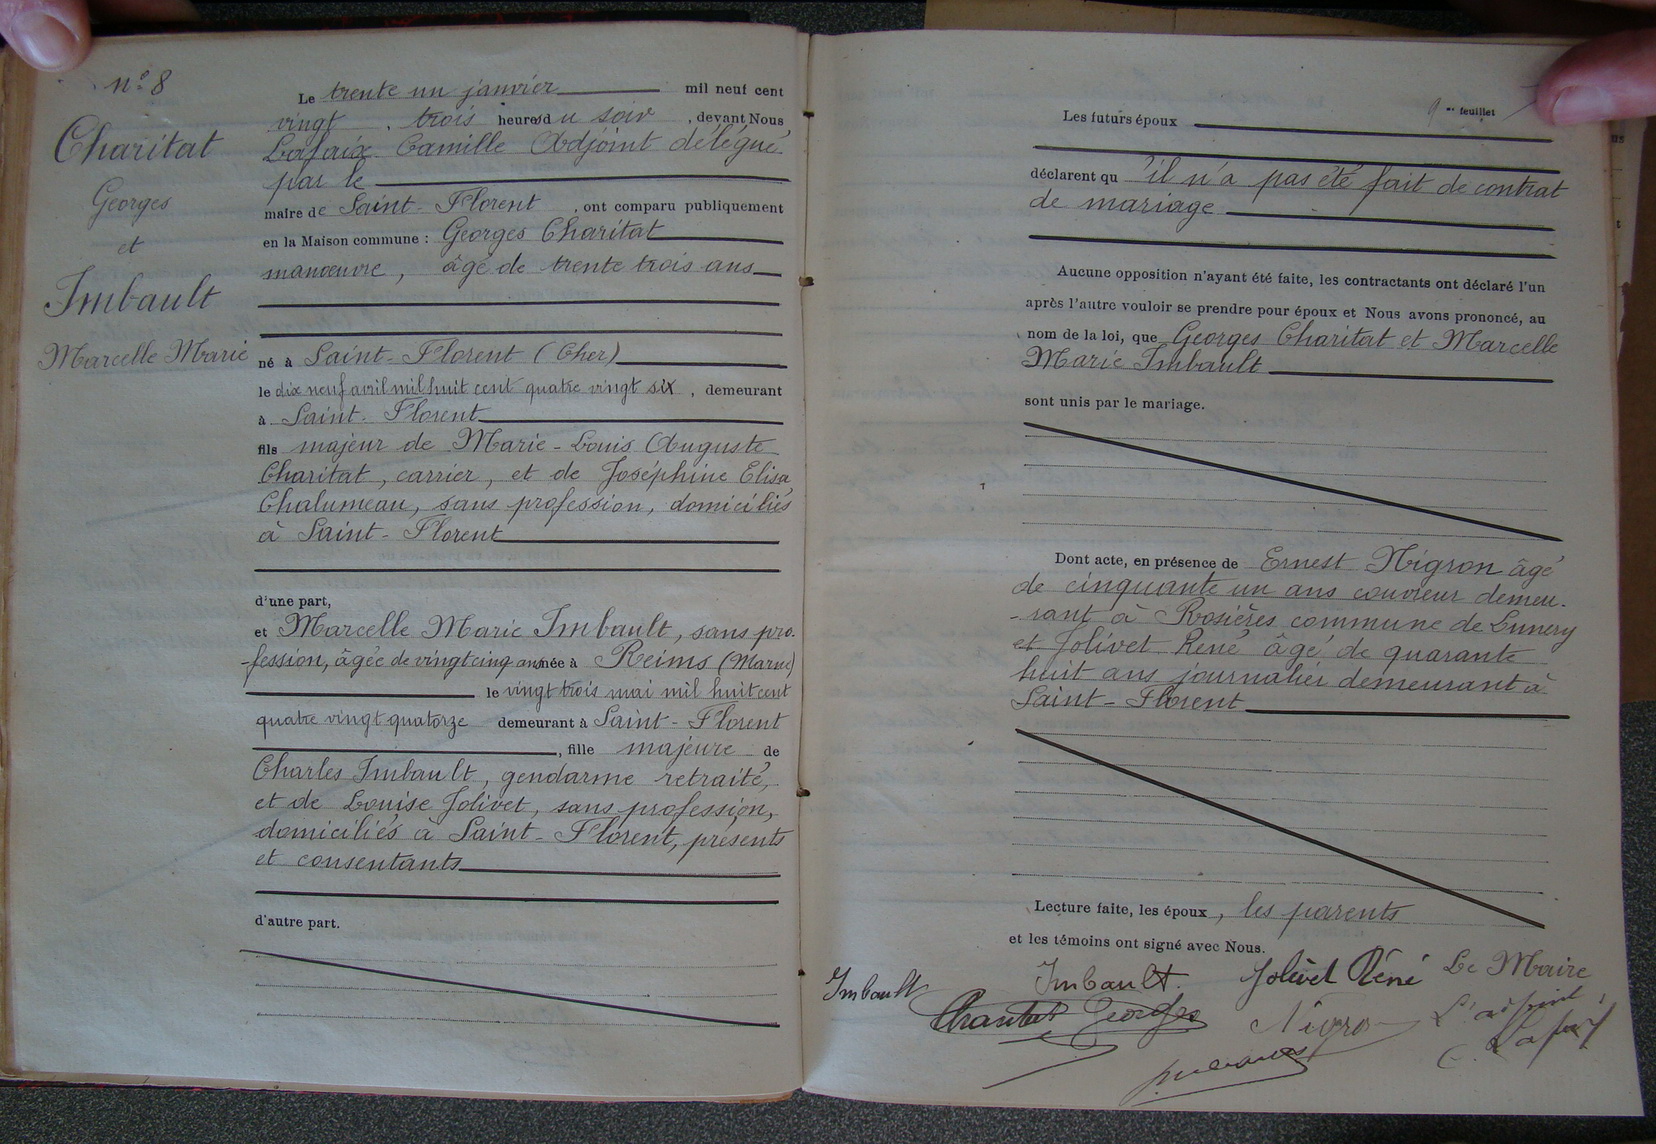 n° 8
Charitat
Georges
et
Imbault
Marcelle Marie
Le trente un janvier mil neuf cent
vingt . trois heures du soir , devant Nous
Lafaix Camille Adjoint délégué
par le
maire de Saint-Florent , ont comparu publiquement
en la Maison commune : Georges Charitat
manœuvre, âgé de trente trois ans
né à Saint-Florent (Cher)
le dix neuf avril mil huit cent quatre vingt six , demeurant
à Saint-Florent
fils majeur de Marie-Louis Auguste
Charitat, carrier, et de Joséphine Elisa
Chalumeau, sans profession, domiciliés
à Saint-Florent
d'une part,
et Marcelle Marie Imbault, sans pro-
-fession, âgée de vingt cinq ans née à Reims (Marne)
le vingt trois mai mil huit cent
quatre vingt quatorze demeurant à Saint-Florent
, fille majeure de
Charles Imbault, gendarme retraité,
et de Louise Jolivet, sans profession,
domiciliés à Saint-Florent, présents
et consentants
d'autre part.
9 me feuillet
Les futurs époux
déclarent qu'il n'a pas été fait de contrat
de mariage
Aucune opposition n'ayant été faite, les contractants ont déclaré l'un
après l'autre vouloir se prendre pour époux et Nous avons prononcé, au
nom de la loi, que Georges Charitat et Marcelle
Marie Imbault
sont unis par le mariage.
Dont acte, en présence de Ernest Nigron âgé
de cinquante un ans couvreur demeu-
-rant à Rosières commune de Lunery
et Jolivet René âgé de quarante
huit ans journalier demeurant à
Saint-Florent
Lecture faite, les époux, les parents
et les témoins ont signé avec Nous.
Imbault Imbault. Jolivet Réné Le Maire
Charitat Georges Nigron L'adjoint
C. Lafaix